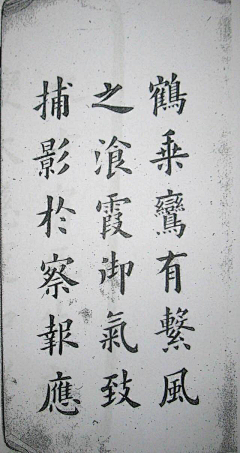 鶴乗鸞有繫風
之飡霞御氣致
捕影於察報應